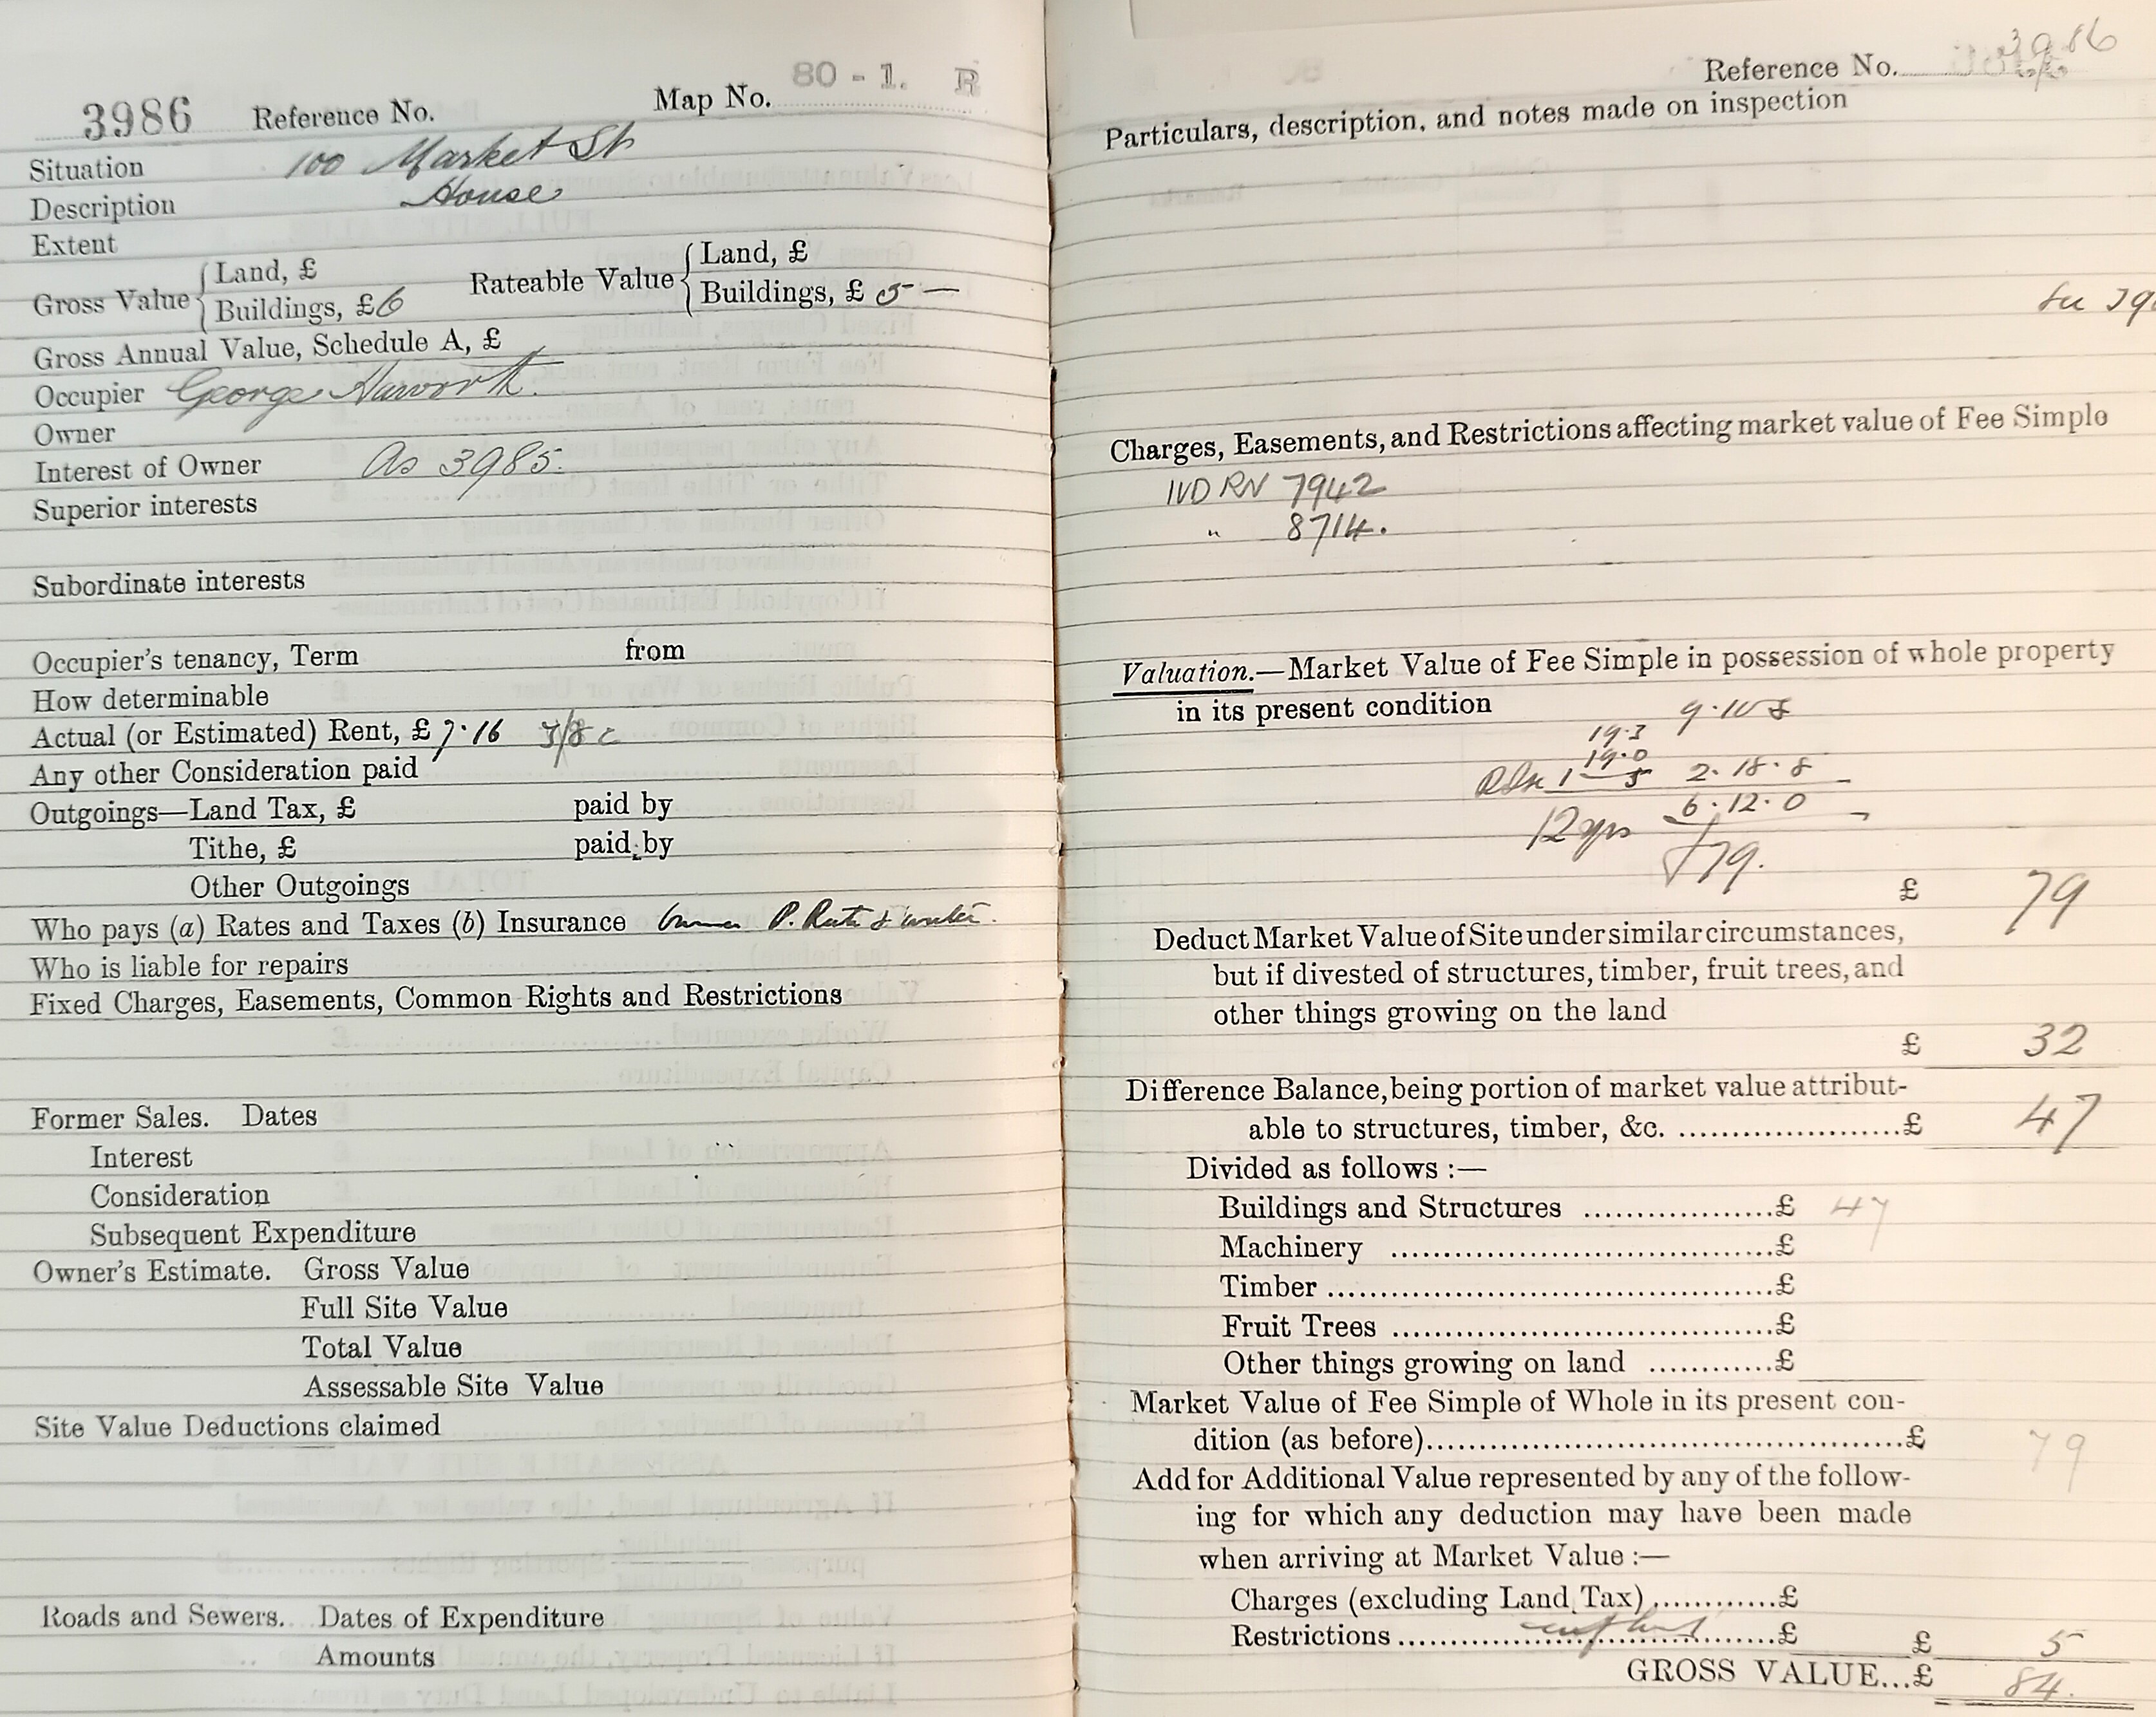 3986 Reference No. Map No. 80 - 1. R
Situation 100 Market St
Description House
Extent
Gross Value { Land, £
Buildings, £6
Rateable Value { Land, £
Buildings, £ 5 —
Gross Annual Value, Schedule A, £
Occupier George Haworth.
Owner
Interest of Owner As 3985.
Superior interests
Subordinate interests
Occupier's tenancy, Term from
How determinable
Actual (or Estimated) Rent, £ 7·16
Any other Consideration paid
Outgoings—Land Tax, £ paid by
Tithe, £ paid by
Other Outgoings
Who pays (a) Rates and Taxes (b) Insurance Owner P. Rate & water.
Who is liable for repairs
Fixed Charges, Easements, Common Rights and Restrictions
Former Sales. Dates
Interest
Consideration
Subsequent Expenditure
Owner's Estimate. Gross Value
Full Site Value
Total Value
Assessable Site Value
Site Value Deductions claimed
Roads and Sewers. Dates of Expenditure
Amounts
Reference No. 3986
Particulars, description, and notes made on inspection
Charges, Easements, and Restrictions affecting market value of Fee Simple
IVD RN 7942
" 8714.
Valuation.—Market Value of Fee Simple in possession of whole property
in its present condition
9·10 8
19·3
19·0
1 5 2·18·8
6·12·0
12 yrs
£79.
£ 79
Deduct Market Value of Site under similar circumstances,
but if divested of structures, timber, fruit trees, and
other things growing on the land
£ 32
Difference Balance, being portion of market value attribut-
able to structures, timber, &c. .....................£ 47
Divided as follows :—
Buildings and Structures ..................£ 47
Machinery .....................................£
Timber ...........................................£
Fruit Trees .....................................£
Other things growing on land ............£
Market Value of Fee Simple of Whole in its present con-
dition (as before)..............................................£ 79
Add for Additional Value represented by any of the follow-
ing for which any deduction may have been made
when arriving at Market Value :—
Charges (excluding Land Tax)............£
Restrictions .....................................£ £ 5
GROSS VALUE...£ 84.